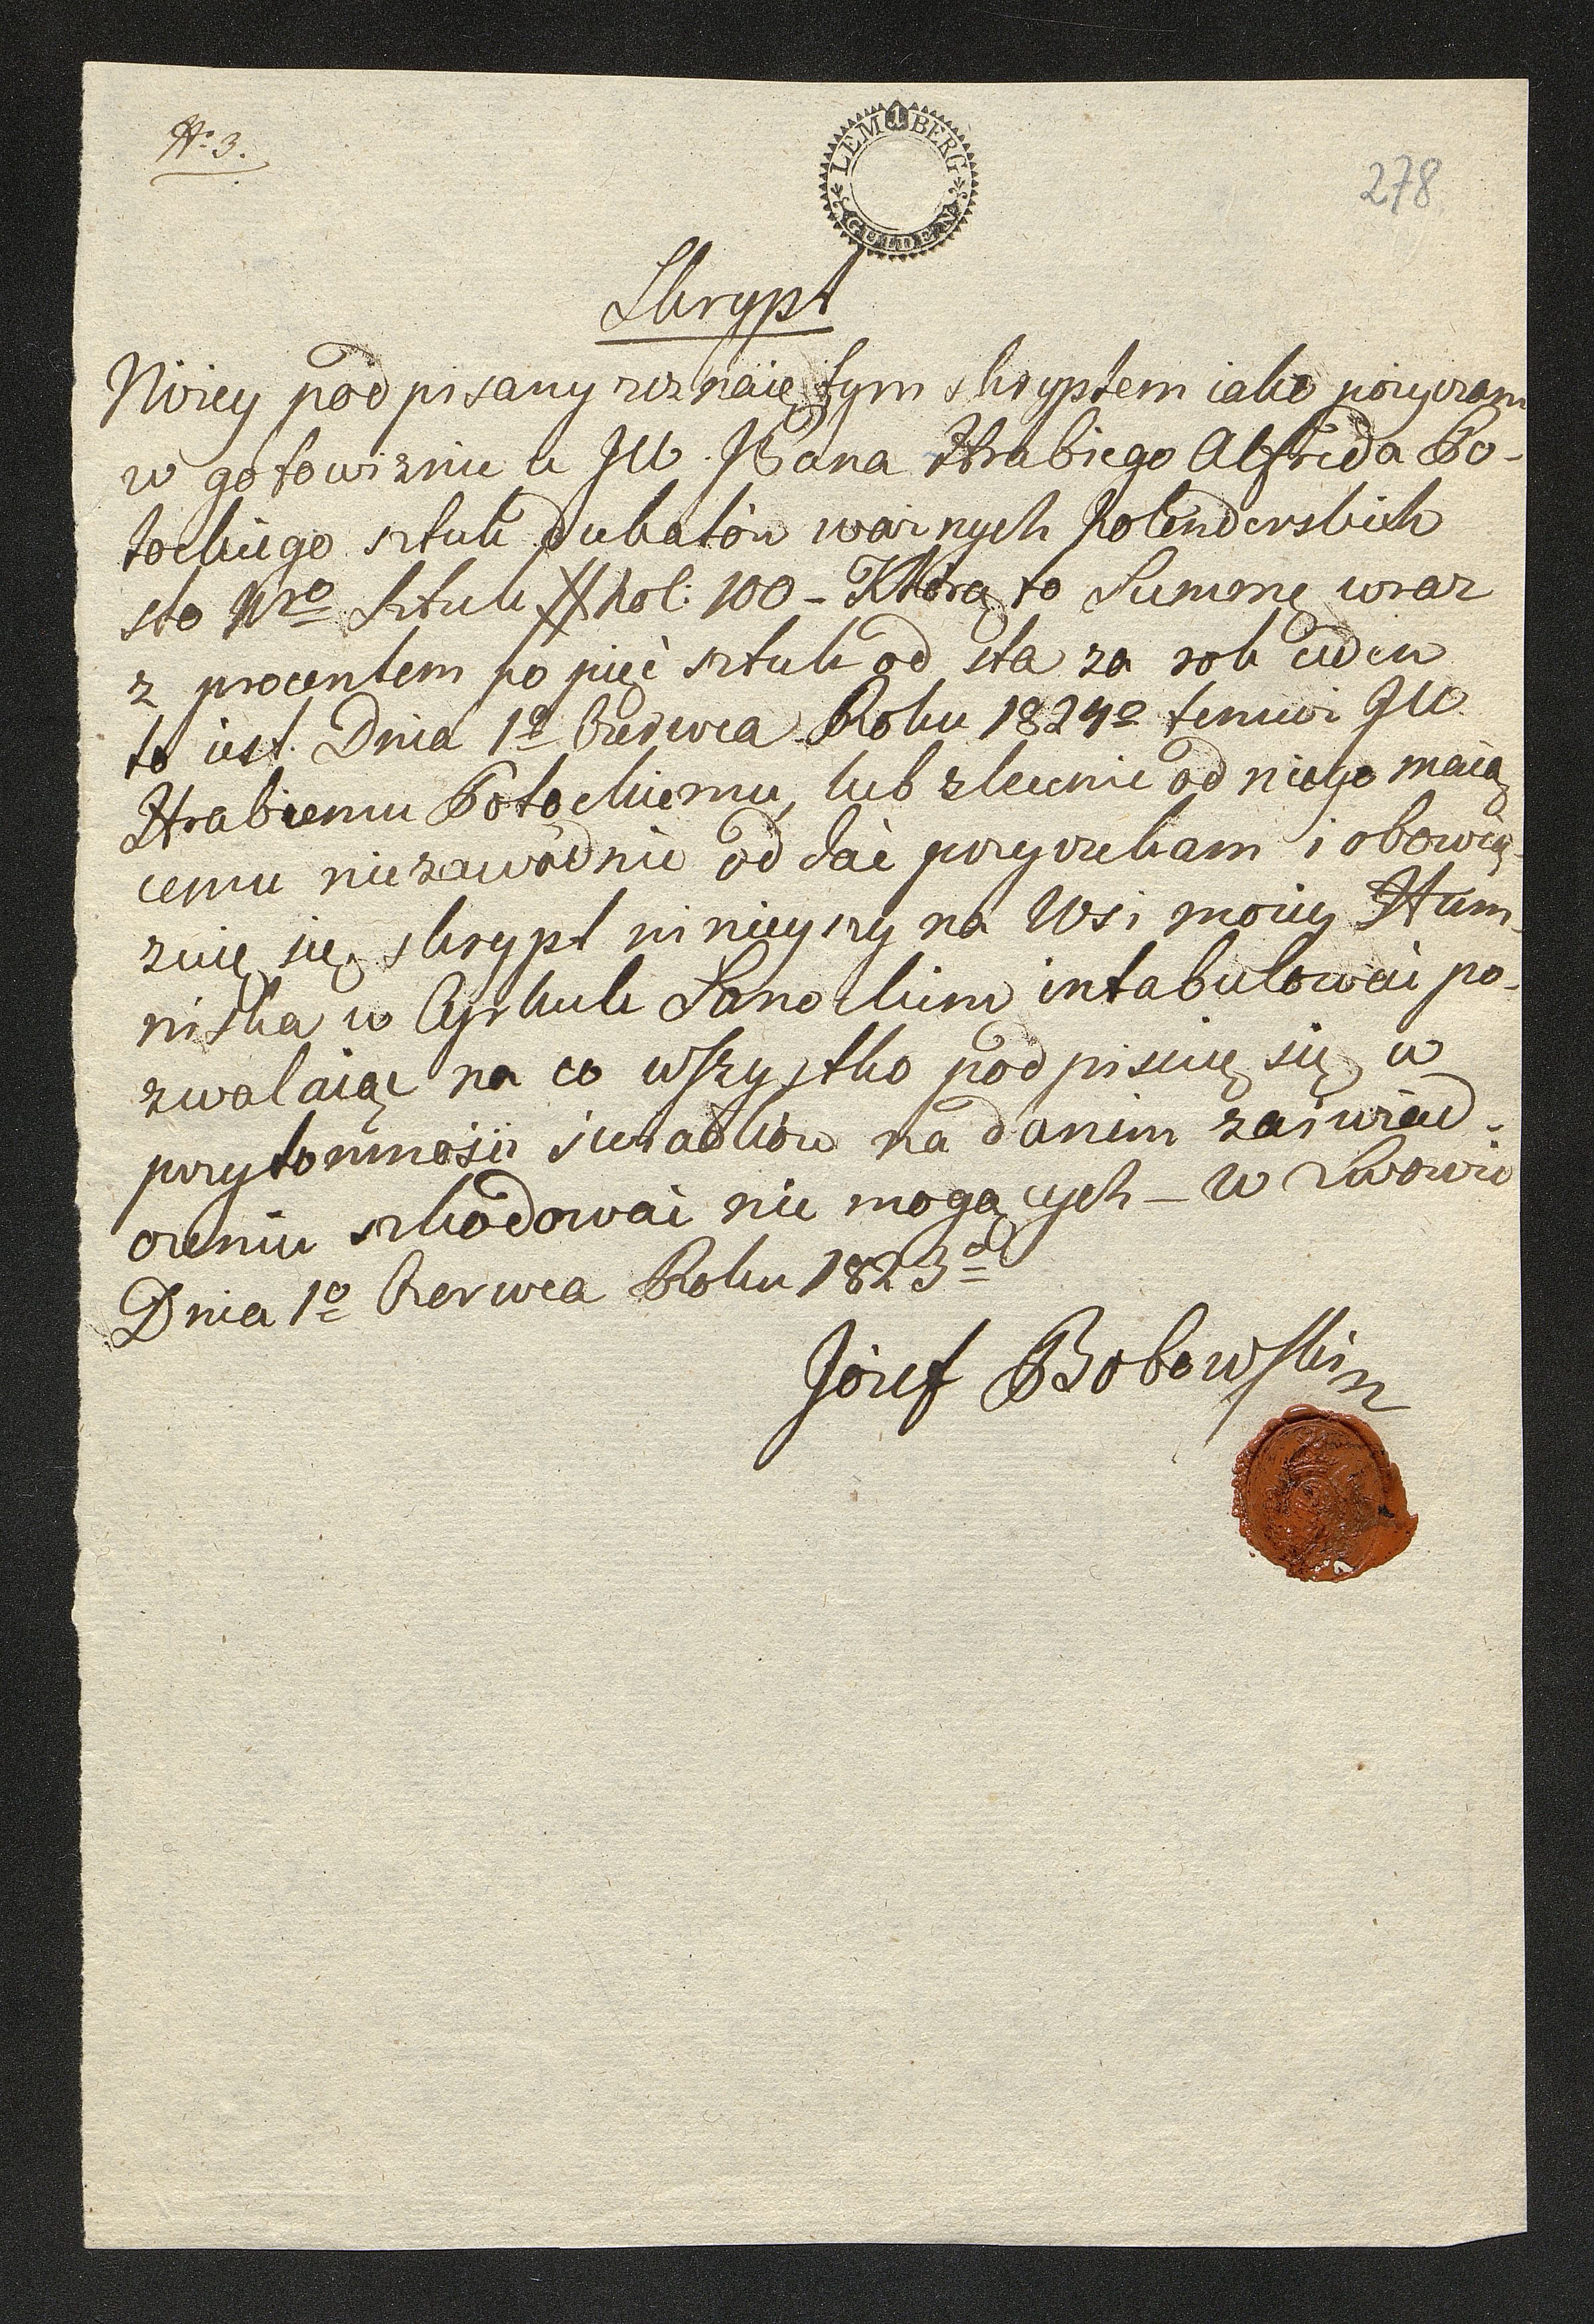 No 3.
LEM 1 BERG
GULDEN
278
Skrypt
Niżey podpisany zeznaię tym skryptem iako pożyczam
w gotowiznie u JW. JPana Hrabiego Alfreda Po-
tockiego sztuk dukatów ważnych holenderskich
sto Nro Sztuk # hol: 100 - Którą to Summę wraz
z procentem po pięć sztuk od sta za rok ieden
to iest Dnia 1o Czerwca Roku 1824o temuż JW
Hrabiemu Potockiemu, lub zlecenie od niego maią
cemu niezawodnie oddać przyrzekam i obowią-
zuię się, skrypt ninieyszy na Wsi moiey Hum-
niska w Cyrkule Sanockim intabulować po-
zwalaiąc na co wszystko podpisuię się w
przytomności świadków na danim zaświad-
czeniu szkodować nie mogących - w Lwowie
Dnia 1o Czerwca Roku 1823o
Józef Bobowski